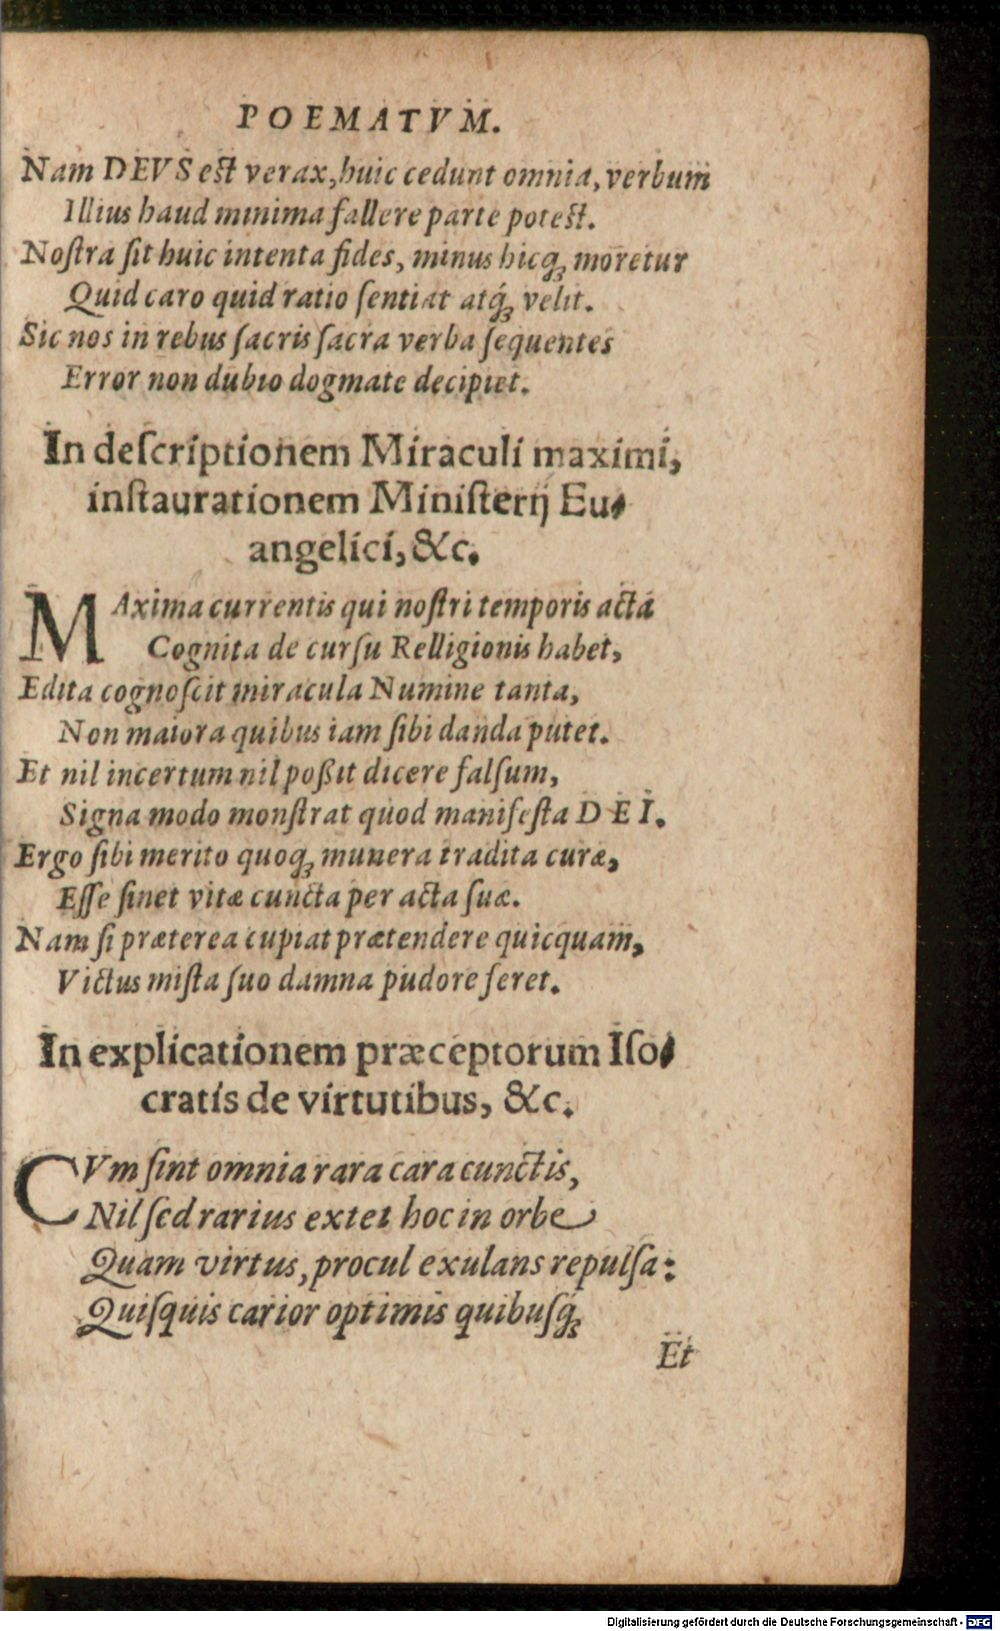 POEMATVM.
Nam DEVS est verax, huic cedunt omnia, verbum
Illius haud minima fallere parte potest.
Noſtra ſit huic intenta fides, minus hicq́; moretur
Quid caro quid ratio ſentiat atq́; velit.
Sic nos in rebus ſacris ſacra verba ſequentes
Error non dubio dogmate decipiet.
In deſcriptionem Miraculi maximi,
inſtaurationem Miniſterij Eu-
angelici, &c.
MAxima currentis qui noſtri temporis acta
Cognita de curſu Relligionis habet,
Edita cognoſcit miracula Numine tanta,
Non maiora quibus iam ſibi danda putet.
Et nil incertum nil poßit dicere falſum,
Signa modo monſtrat quod manifeſta DEI.
Ergo ſibi merito quoq; munera tradita curæ,
Eſſe ſinet vitæ cuncta per acta ſuæ.
Nam ſi præterea cupiat prætendere quicquam,
Victus miſta ſuo damna pudore feret.
In explicationem præceptorum Iſo-
cratis de virtutibus, &c.
CVm ſint omnia rara cara cunctis,
Nil ſed rarius extet hoc in orbe
Quam virtus, procul exulans repulſa:
Quiſquis carior optimis quibuſq́;
Et
Digitalisierung gefördert durch die Deutsche Forschungsgemeinschaft - DFG